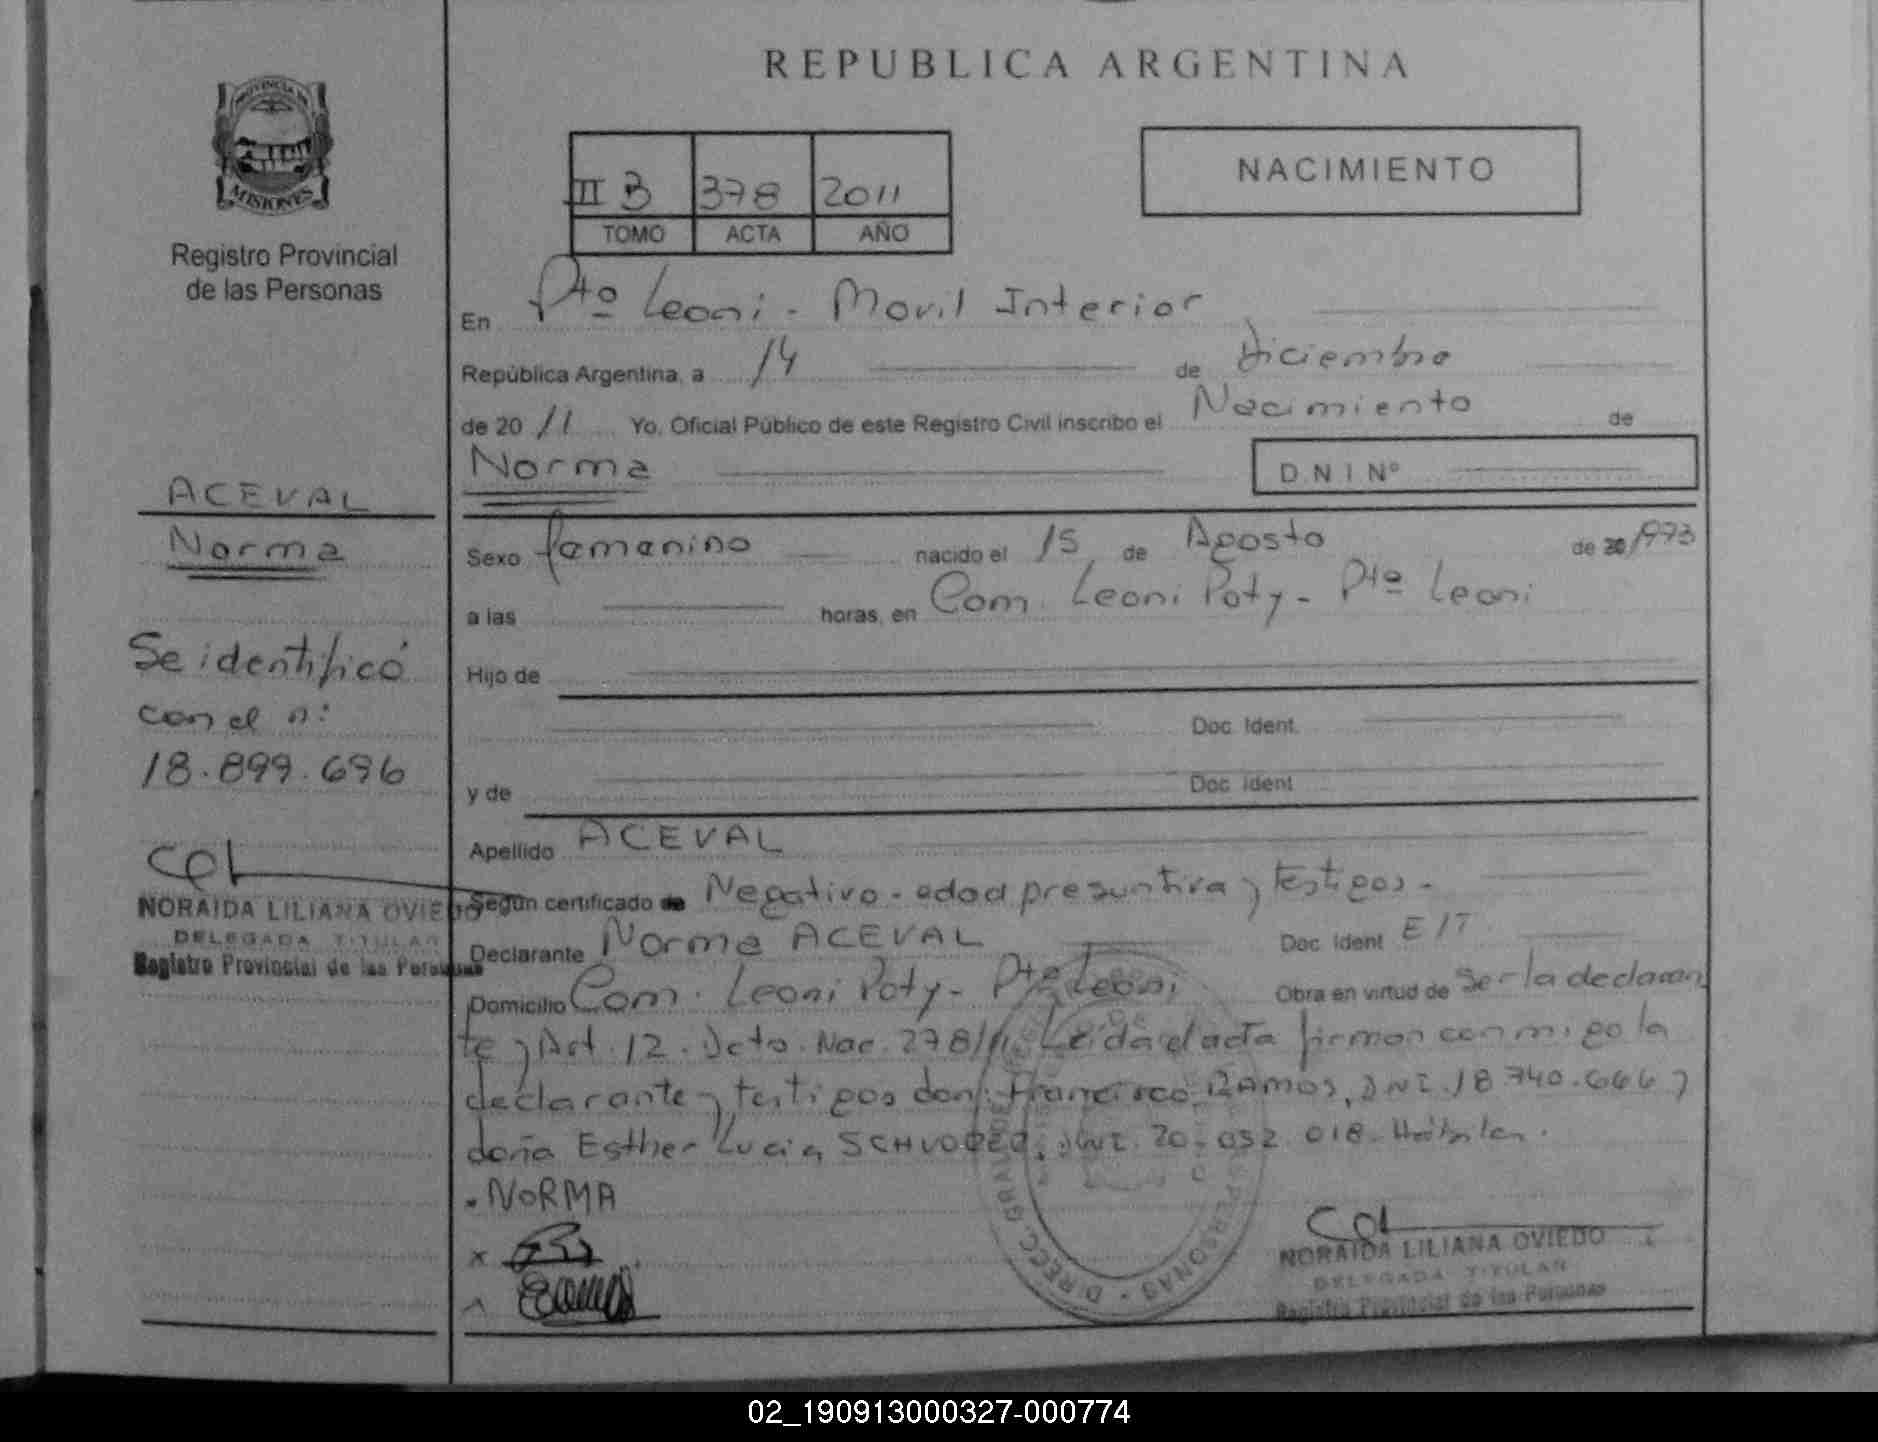 REPUBLICA ARGENTINA
PROVINCIA DE
MISIONES
Registro Provincial
de las Personas
III B 378 2011
TOMO ACTA AÑO
NACIMIENTO
En Pto Leoni - Movil Interior
República Argentina, a 14 de Diciembre
de 20 11 Yo, Oficial Público de este Registro Civil inscribo el Nacimiento de
Norma D N I Nº
ACEVAL
Norma
Se identificó
con el n:
18.899.696
NORAIDA LILIANA OVIEDO
DELEGADA TITULAR
Registro Provincial de las Personas
Sexo femenino nacido el 15 de Agosto de 20 1973
a las horas, en Com. Leoni Poty - Pto Leoni
Hijo de
Doc. Ident.
y de Doc. Ident
Apellido ACEVAL
Según certificado de Negativo - edad presuntiva y testigos -
Declarante Norma ACEVAL Doc. Ident E/T
Domicilio Com. Leoni Poty - Pto Leoni Obra en virtud de ser la declaran
te y Art. 12. Dcto. Nac. 278/11. Leida el acta firman conmigo la
declarante y testigos don: Francisco RAMOS, DNI. 18.740.666 y
doña Esther Lucia DNI. 20.052.018.
NORMA
NORAIDA LILIANA OVIEDO
DELEGADA TITULAR
Registro Provincial de las Personas
02_190913000327-000774